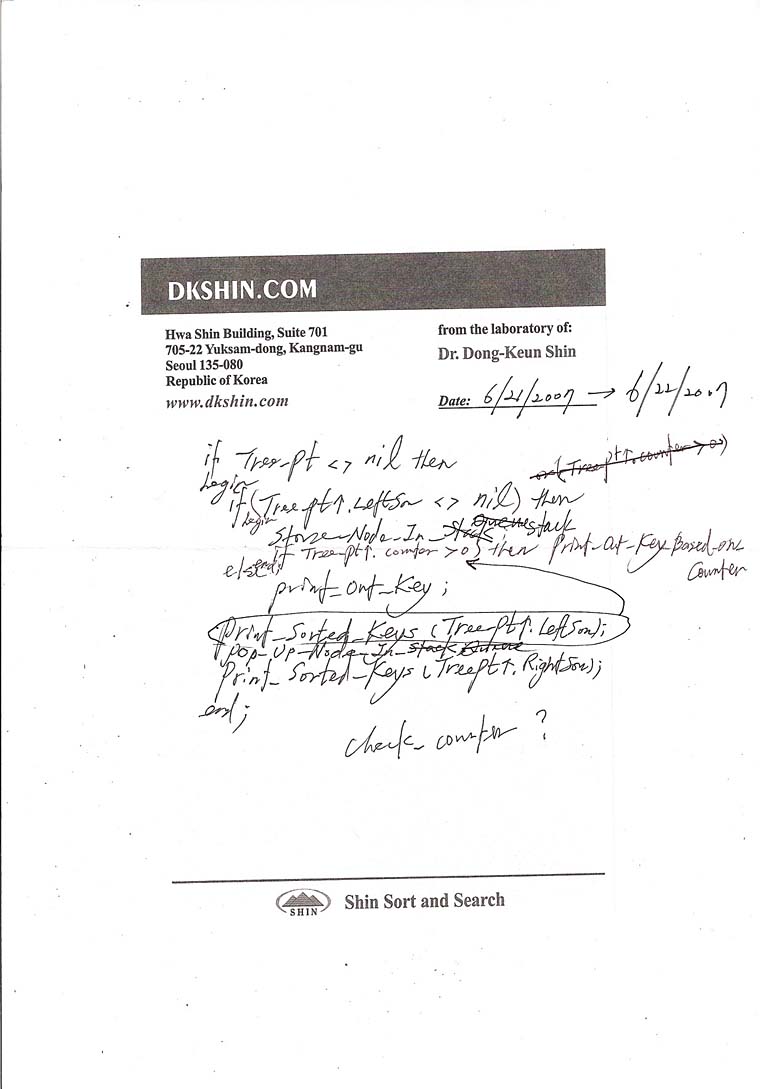 DKSHIN.COM
Hwa Shin Building, Suite 701
705-22 Yuksam-dong, Kangnam-gu
Seoul 135-080
Republic of Korea
www.dkshin.com
from the laboratory of:
Dr. Dong-Keun Shin
Date: 6/21/2007 → 6/22/2007
if Tree-pt <> nil then
or (Tree-pt↑.counter > 0)
begin
if (Tree-pt↑.LeftSon <> nil) then
begin
Store-Node-In-stack Queue stack
if Tree-pt↑. counter > 0) then Print-Out-Key-Based-on-
Counter
else end;
print-out-Key;
Print-Sorted-Keys (Tree-Pt↑.LeftSon);
Pop-Up-Node-In-stack
Print-Sorted-Keys (Tree-Pt↑.RightSon);
end;
check-counter ?
SHIN
Shin Sort and Search